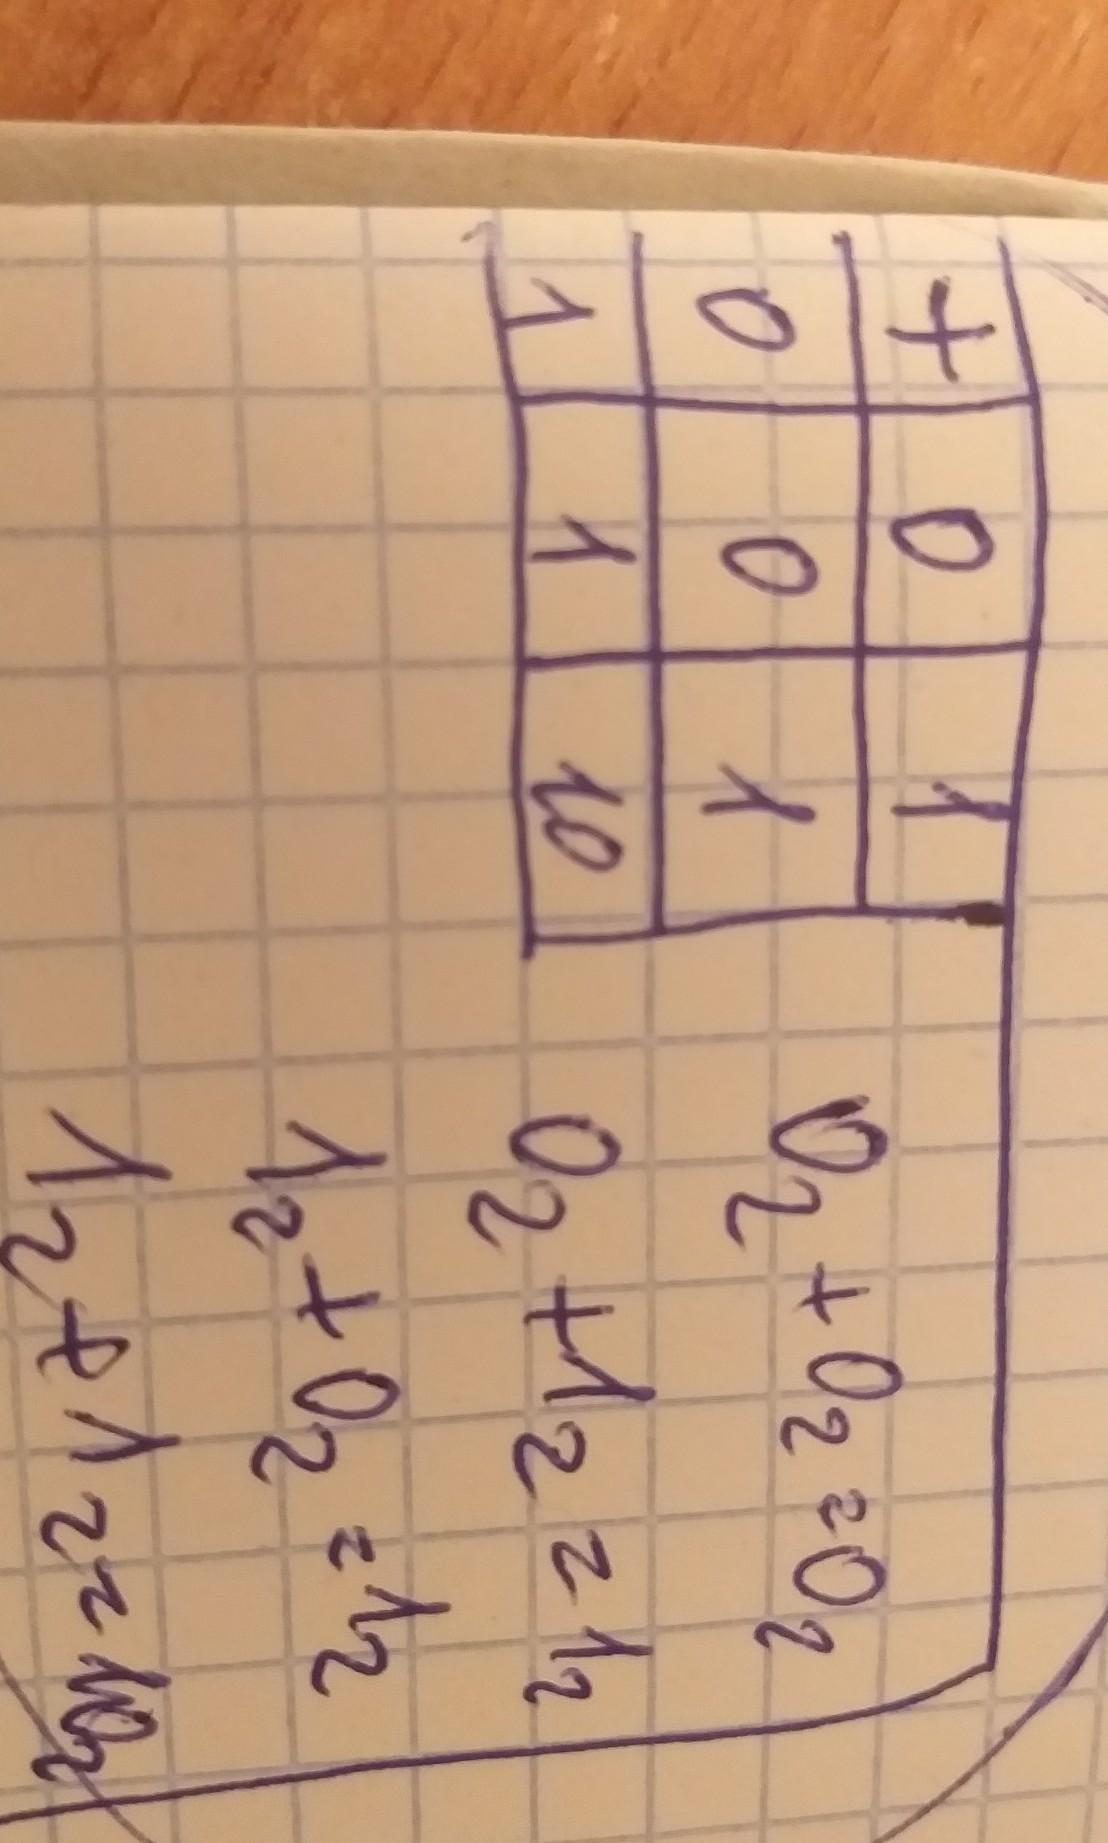 + 0 1
0 0 1
1 1 10
0₂ + 0₂ = 0₂
0₂ + 1₂ = 1₂
1₂ + 0₂ = 1₂
1₂ + 1₂ = 10₂